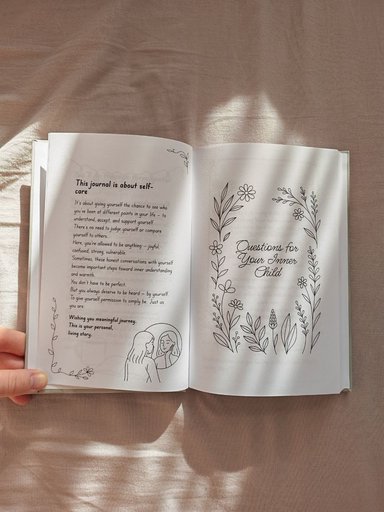 This journal is about self-
care
It's about giving yourself the chance to see who
you've been at different points in your life – to
understand, accept, and support yourself.
There's no need to judge yourself or compare
yourself to others.
Here, you're allowed to be anything – joyful,
confused, strong, vulnerable.
Sometimes, these honest conversations with yourself
become important steps toward inner understanding
and warmth.
You don't have to be perfect.
But you always deserve to be heard – by yourself.
To give yourself permission to simply be. Just as
you are.
Wishing you meaningful journey.
This is your personal,
living story.
Questions for
Your Inner
Child